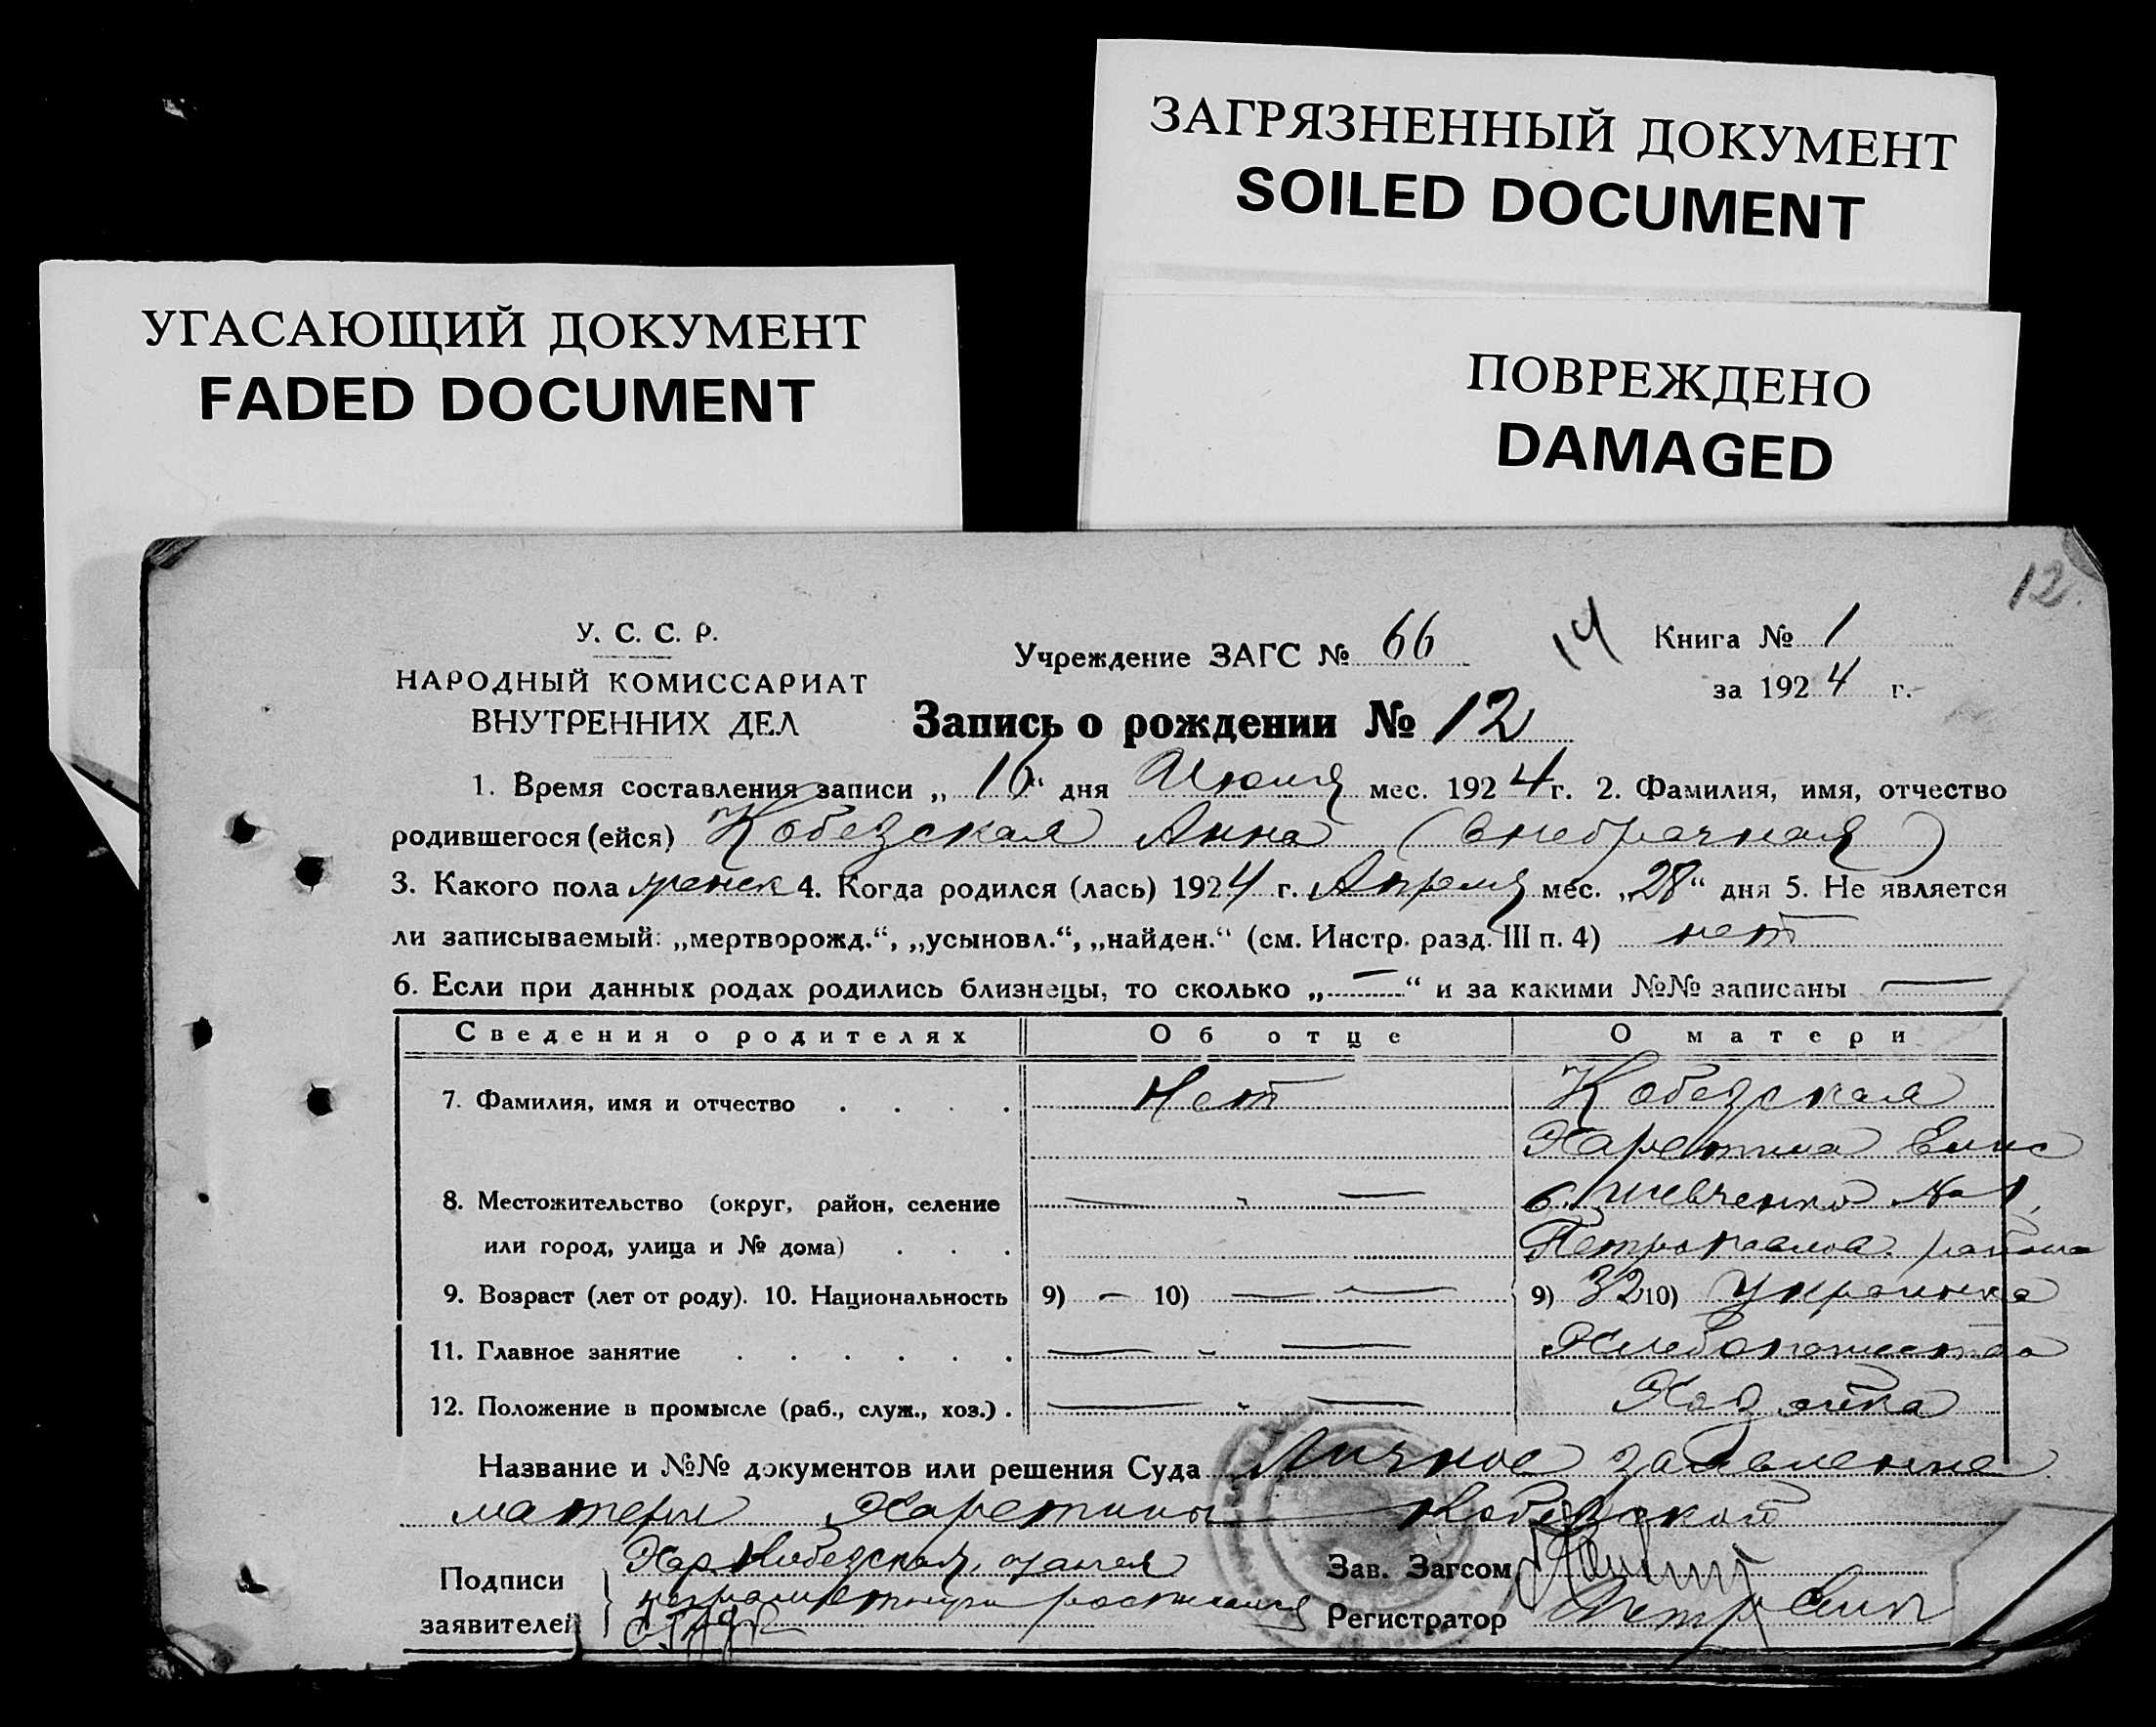 ЗАГРЯЗНЕННЫЙ ДОКУМЕНТ
SOILED DOCUMENT
УГАСАЮЩИЙ ДОКУМЕНТ
FADED DOCUMENT
ПОВРЕЖДЕНО
DAMAGED
12.
У. С. С. Р.
НАРОДНЫЙ КОМИССАРИАТ
ВНУТРЕННИХ ДЕЛ
Учреждение ЗАГС № 66
14
Книга № 1
за 1924 г.
Запись о рождении № 12
1. Время составления записи „16“ дня Июля мес. 1924 г. 2. Фамилия, имя, отчество
родившегося (ейся) Кобезская Анна (внебрачная)
3. Какого пола женск 4. Когда родился (лась) 1924 г. Апреля мес. „28“ дня 5. Не является
ли записываемый: „мертворожд.“, „усыновл.“, „найден.“ (см. Инстр. разд. III п. 4) нет
6. Если при данных родах родились близнецы, то сколько „—“ и за какими №№ записаны —
Сведения о родителях Об отце О матери
7. Фамилия, имя и отчество . . . . Нет Кобезская
Харетина Елис
8. Местожительство (округ, район, селение — „ — с. Шевченко № 1,
или город, улица и № дома) . . . Петропавлов. района
9. Возраст (лет от роду). 10. Национальность 9) — 10) — — 9) 32 10) Украинка
11. Главное занятие . . . . . . — „ — Хлебопашество
12. Положение в промысле (раб., служ., хоз.) . — „ — Хозяйка
Название и №№ документов или решения Суда Личное заявление
матери Харетины Кобезской
Подписи
заявителей
Хар Кобезская, а за нея
неграмотную расписался
Зав. Загсом
Регистратор